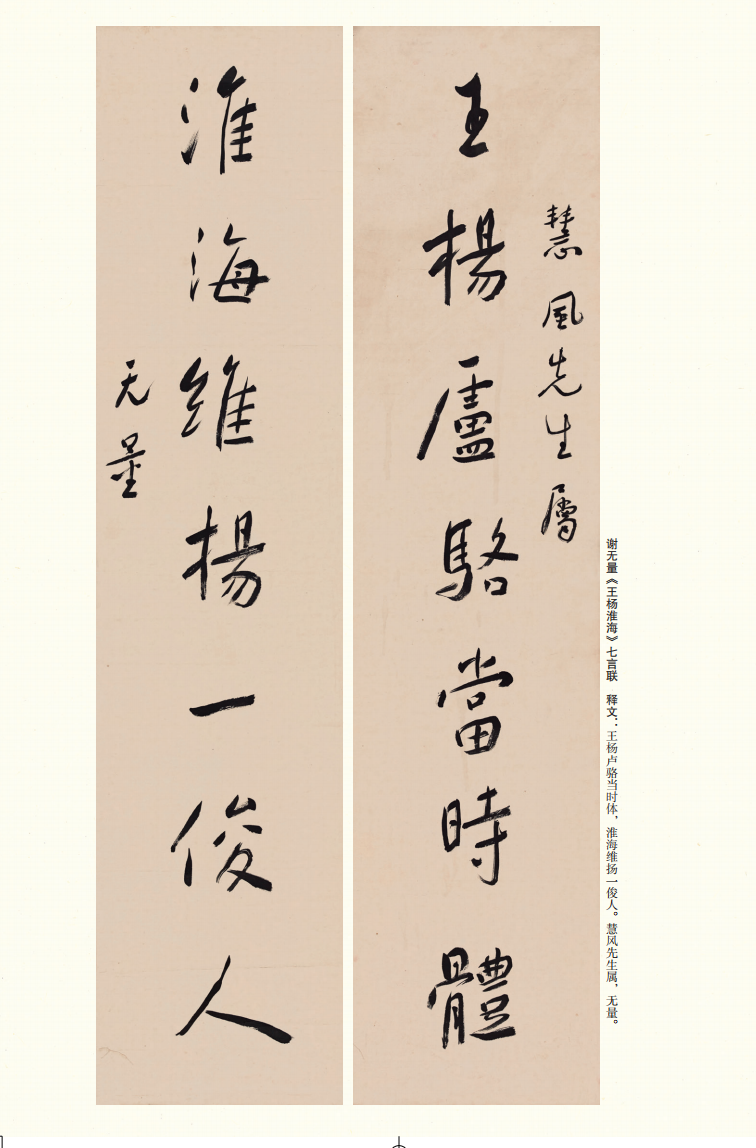 慧風先生屬
王楊盧駱當時體
淮海維揚一俊人
无量
谢无量《王杨淮海》七言联 释文：王杨卢骆当时体，淮海维扬一俊人。慧风先生属，无量。